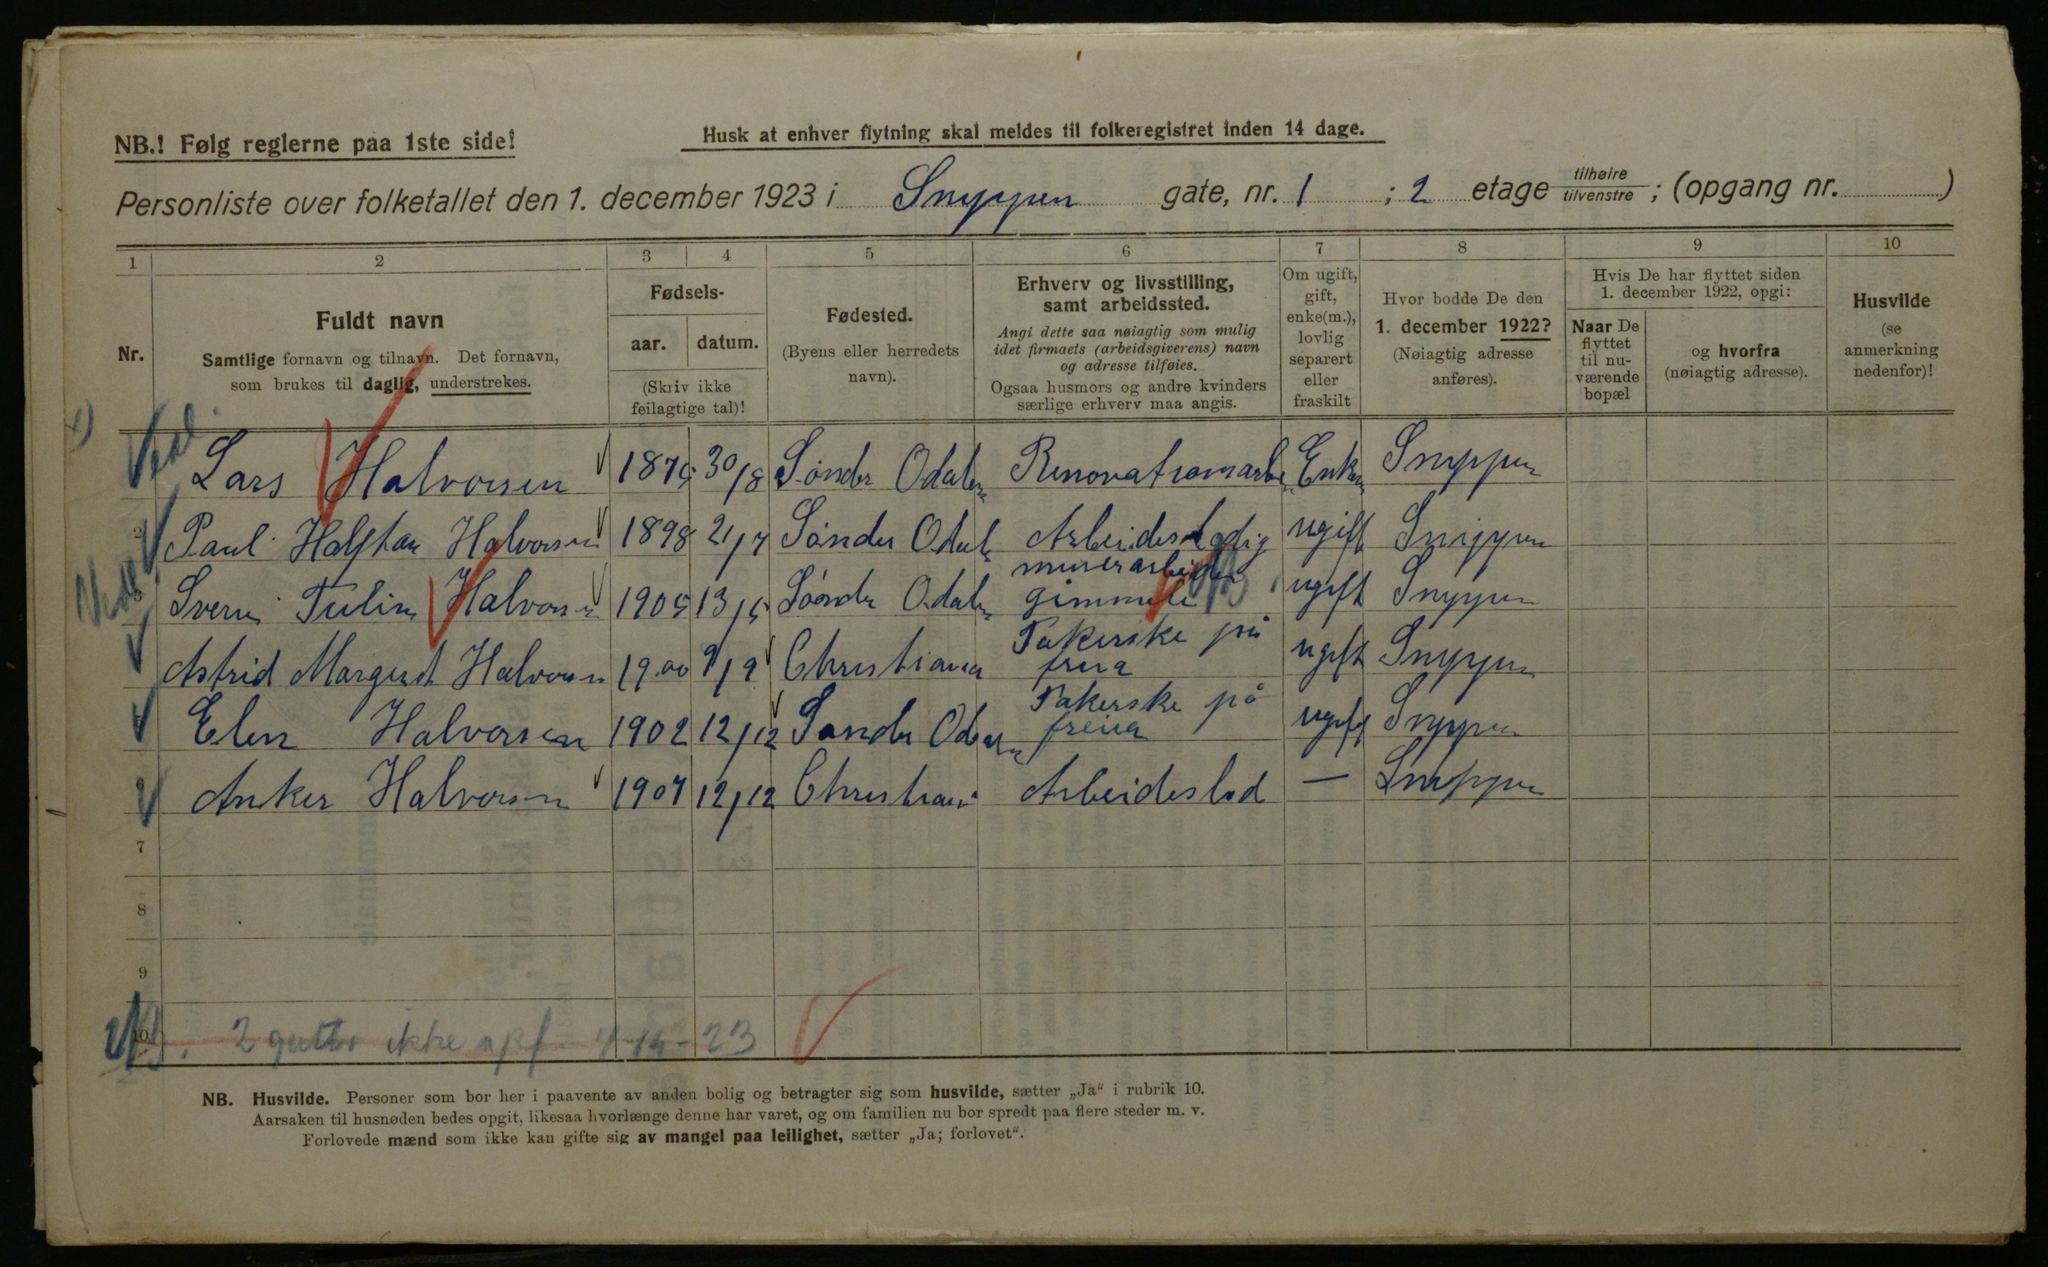 NB.! Følg reglerne paa 1ste side!
Husk at enhver flytning skal meldes til folkeregistret inden 14 dage.
Personliste over folketallet den 1. december 1923 i Snyppen gate, nr. 1 ; 2 etage tilhøire tilvenstre ; (opgang nr. )
1 2 3 4 5 6 7 8 9 10
Nr.
Fuldt navn
Samtlige fornavn og tilnavn. Det fornavn,
som brukes til daglig, understrekes.
Fødsels-
aar. datum.
(Skriv ikke
feilagtige tal)!
Fødested.
(Byens eller herredets
navn).
Erhverv og livsstilling,
samt arbeidssted.
Angi dette saa nøiagtig som mulig
idet firmaets (arbeidsgiverens) navn
og adresse tilføies.
Ogsaa husmors og andre kvinders
særlige erhverv maa angis.
Om ugift,
gift,
enke(m.),
lovlig
separert
eller
fraskilt
Hvor bodde De den
1. december 1922?
(Nøiagtig adresse
anføres).
Hvis De har flyttet siden
1. december 1922, opgi:
Naar De
flyttet
til nu-
værende
bopæl
og hvorfra
(nøiagtig adresse).
Husvilde
(se
anmerkning
nedenfor)!
Lars Halvorsen 1875 30/8 Sønder Odalen Renovationsarbe Enkem Snyppen
2 Paul Halftan Halvorsen 1898 21/7 Sønder Odalen Arbeidsledig ugift Snippen
murerarbeider
3 Sverri Halvorsen 1905 13/5 Søndr Odalen ugift Snyppen
Pakerske på
Astrid Margredt Halvorsen 1900 9/9 Christiania freia ugift Snyppen
Pakerske på
5 Elen Halvorsen 1902 12/12 Sønder Odalen freiia ugift Snyppen
6 Anker Halvorsen 1907 12/12 Christiani Arbeidsled — Snyppen
7
8
9
10 2 gutter ikke opf.
NB. Husvilde. Personer som bor her i paavente av anden bolig og betragter sig som husvilde, sætter „Ja“ i rubrik 10.
Aarsaken til husnøden bedes opgit, likesaa hvorlænge denne har varet, og om familien nu bor spredt paa flere steder m. v.
Forlovede mænd som ikke kan gifte sig av mangel paa leilighet, sætter „Ja; forlovet“.